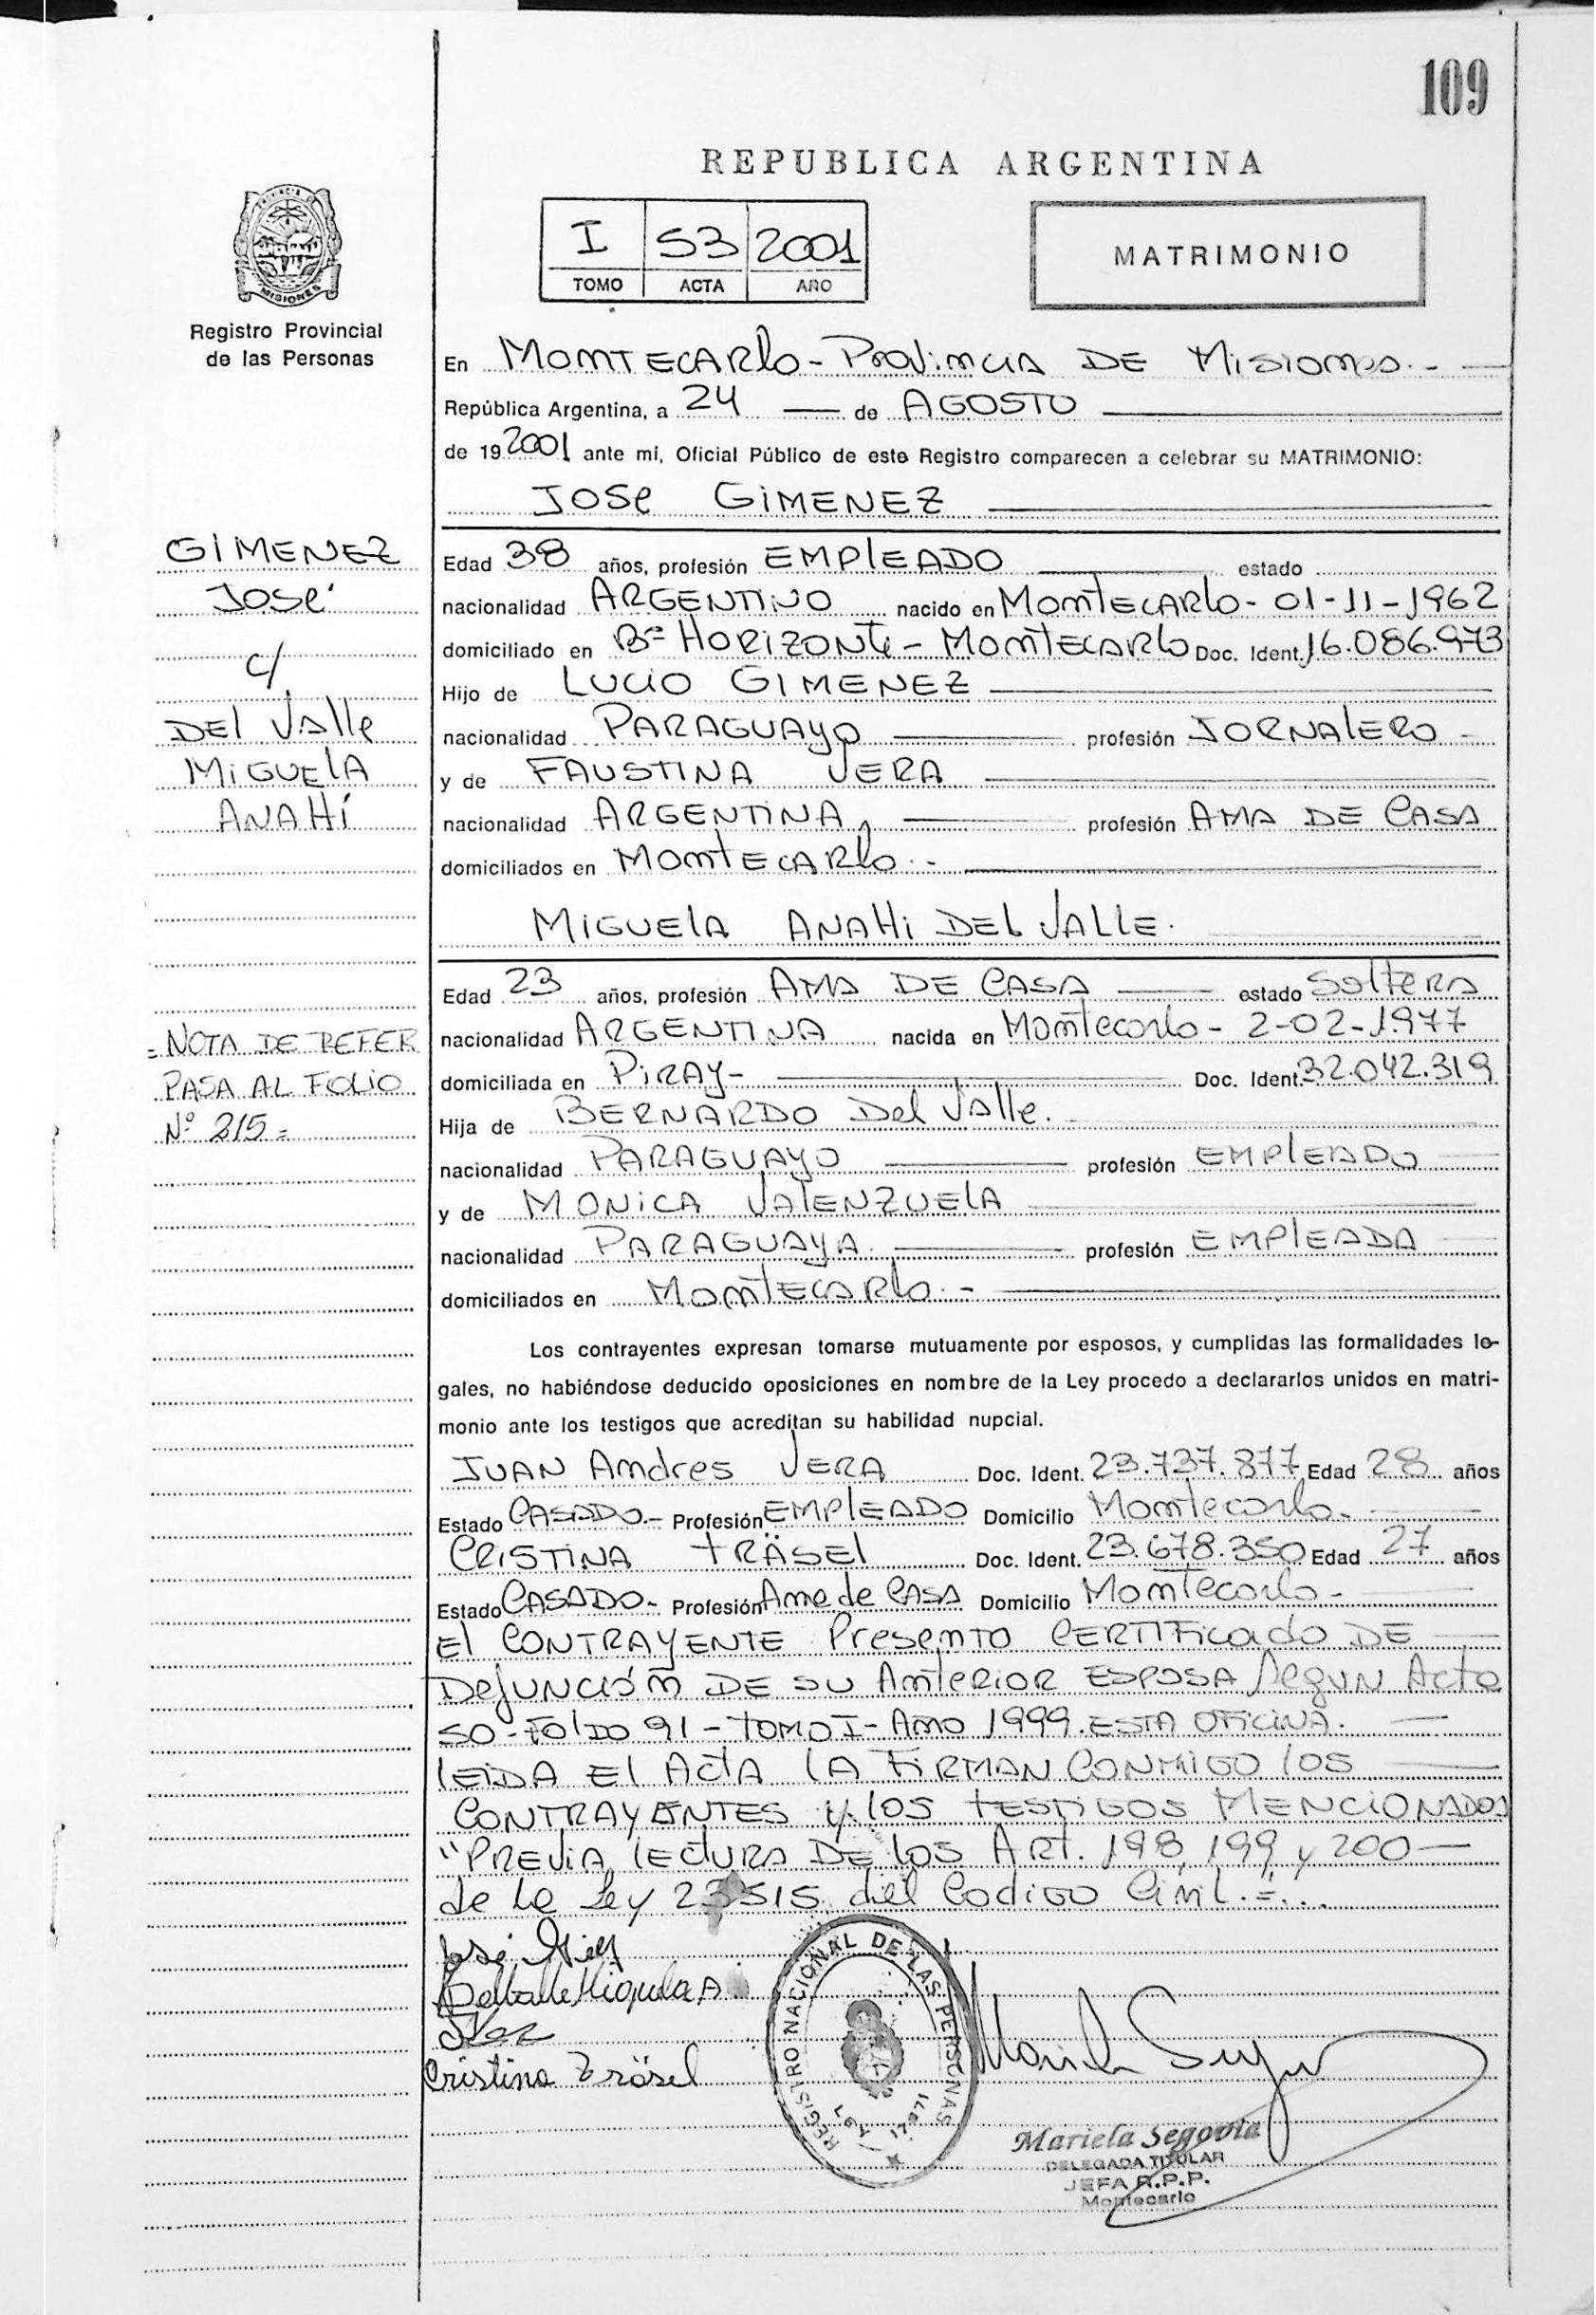 109
REPUBLICA ARGENTINA
PROVINCIA DE
MISIONES
Registro Provincial
de las Personas
I 53 2001
TOMO ACTA AÑO
MATRIMONIO
En MONTECARLO - PROVINCIA DE MISIONES.-
República Argentina, a 24 de AGOSTO
de 19 2001 ante mí, Oficial Público de este Registro comparecen a celebrar su MATRIMONIO:
JOSE GIMENEZ
GIMENEZ
JOSÉ
c/
DEL VALLE
MIGUELA
ANAHÍ
Edad 38 años, profesión EMPLEADO estado
nacionalidad ARGENTINO nacido en MONTECARLO - 01-11-1962
domiciliado en Bº HORIZONTE - MONTECARLO Doc. Ident. 16.086.973
Hijo de LUCIO GIMENEZ
nacionalidad PARAGUAYO profesión JORNALERO -
y de FAUSTINA VERA
nacionalidad ARGENTINA, profesión AMA DE CASA
domiciliados en MONTECARLO.-
MIGUELA ANAHI DEL VALLE.
Edad 23 años, profesión AMA DE CASA estado SOLTERA
nacionalidad ARGENTINA nacida en Montecarlo - 2-02-1.977
domiciliada en PIRAY- Doc. Ident. 32.042.319
Hija de BERNARDO DEL VALLE.
nacionalidad PARAGUAYO profesión EMPLEADO
y de MONICA VALENZUELA
nacionalidad PARAGUAYA. profesión EMPLEADA
domiciliados en MONTECARLO.-
= NOTA DE REFER
PASA AL FOLIO
Nº 215=
Los contrayentes expresan tomarse mutuamente por esposos, y cumplidas las formalidades le-
gales, no habiéndose deducido oposiciones en nombre de la Ley procedo a declararlos unidos en matri-
monio ante los testigos que acreditan su habilidad nupcial.
JUAN Andres VERA Doc. Ident. 23.737.877 Edad 28 años
Estado CASADO.- Profesión EMPLEADO Domicilio Montecarlo.-
CRISTINA TRÄSEL Doc. Ident. 23.678.350 Edad 27 años
Estado CASADO- Profesión Ama de CASA Domicilio Montecarlo -
El CONTRAYENTE Presento CERTIFICADO DE
DEFUNCIÓN DE SU ANTERIOR ESPOSA Segun Acta
50 - FOLIO 91 - TOMO I - AÑO 1999. ESTA OFICINA.
LEIDA El ACTA LA FIRMAN CONMIGO los
CONTRAYENTES y los TESTIGOS MENCIONADOS
"PREVIA LECTURA DE los ART. 198, 199 y 200
de la Ley 23515 del Codigo Civil.=...
José
DelValle Miguela A
Cristina Träsel
REGISTRO NACIONAL DE LAS PERSONAS
LEY 17.671
Mariela Segovia
DELEGADA TITULAR
JEFA R.P.P.
Montecarlo